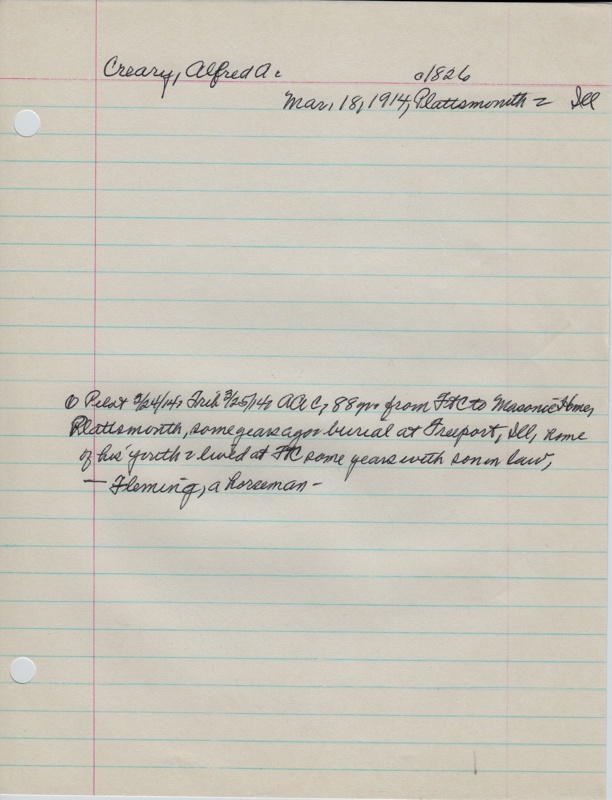 Creary, Alfred A. c1826
Mar, 18, 1914, Plattsmouth - Ill
Pilot 3/24/14, Trib 3/25/14, AAC, 88 yr. from Ft C to Masonic Home,
Plattsmouth, some years ago - burial at Freeport, Ill, home
of his youth - lived at Ft C some years with son in law,
— Fleming, a horseman -